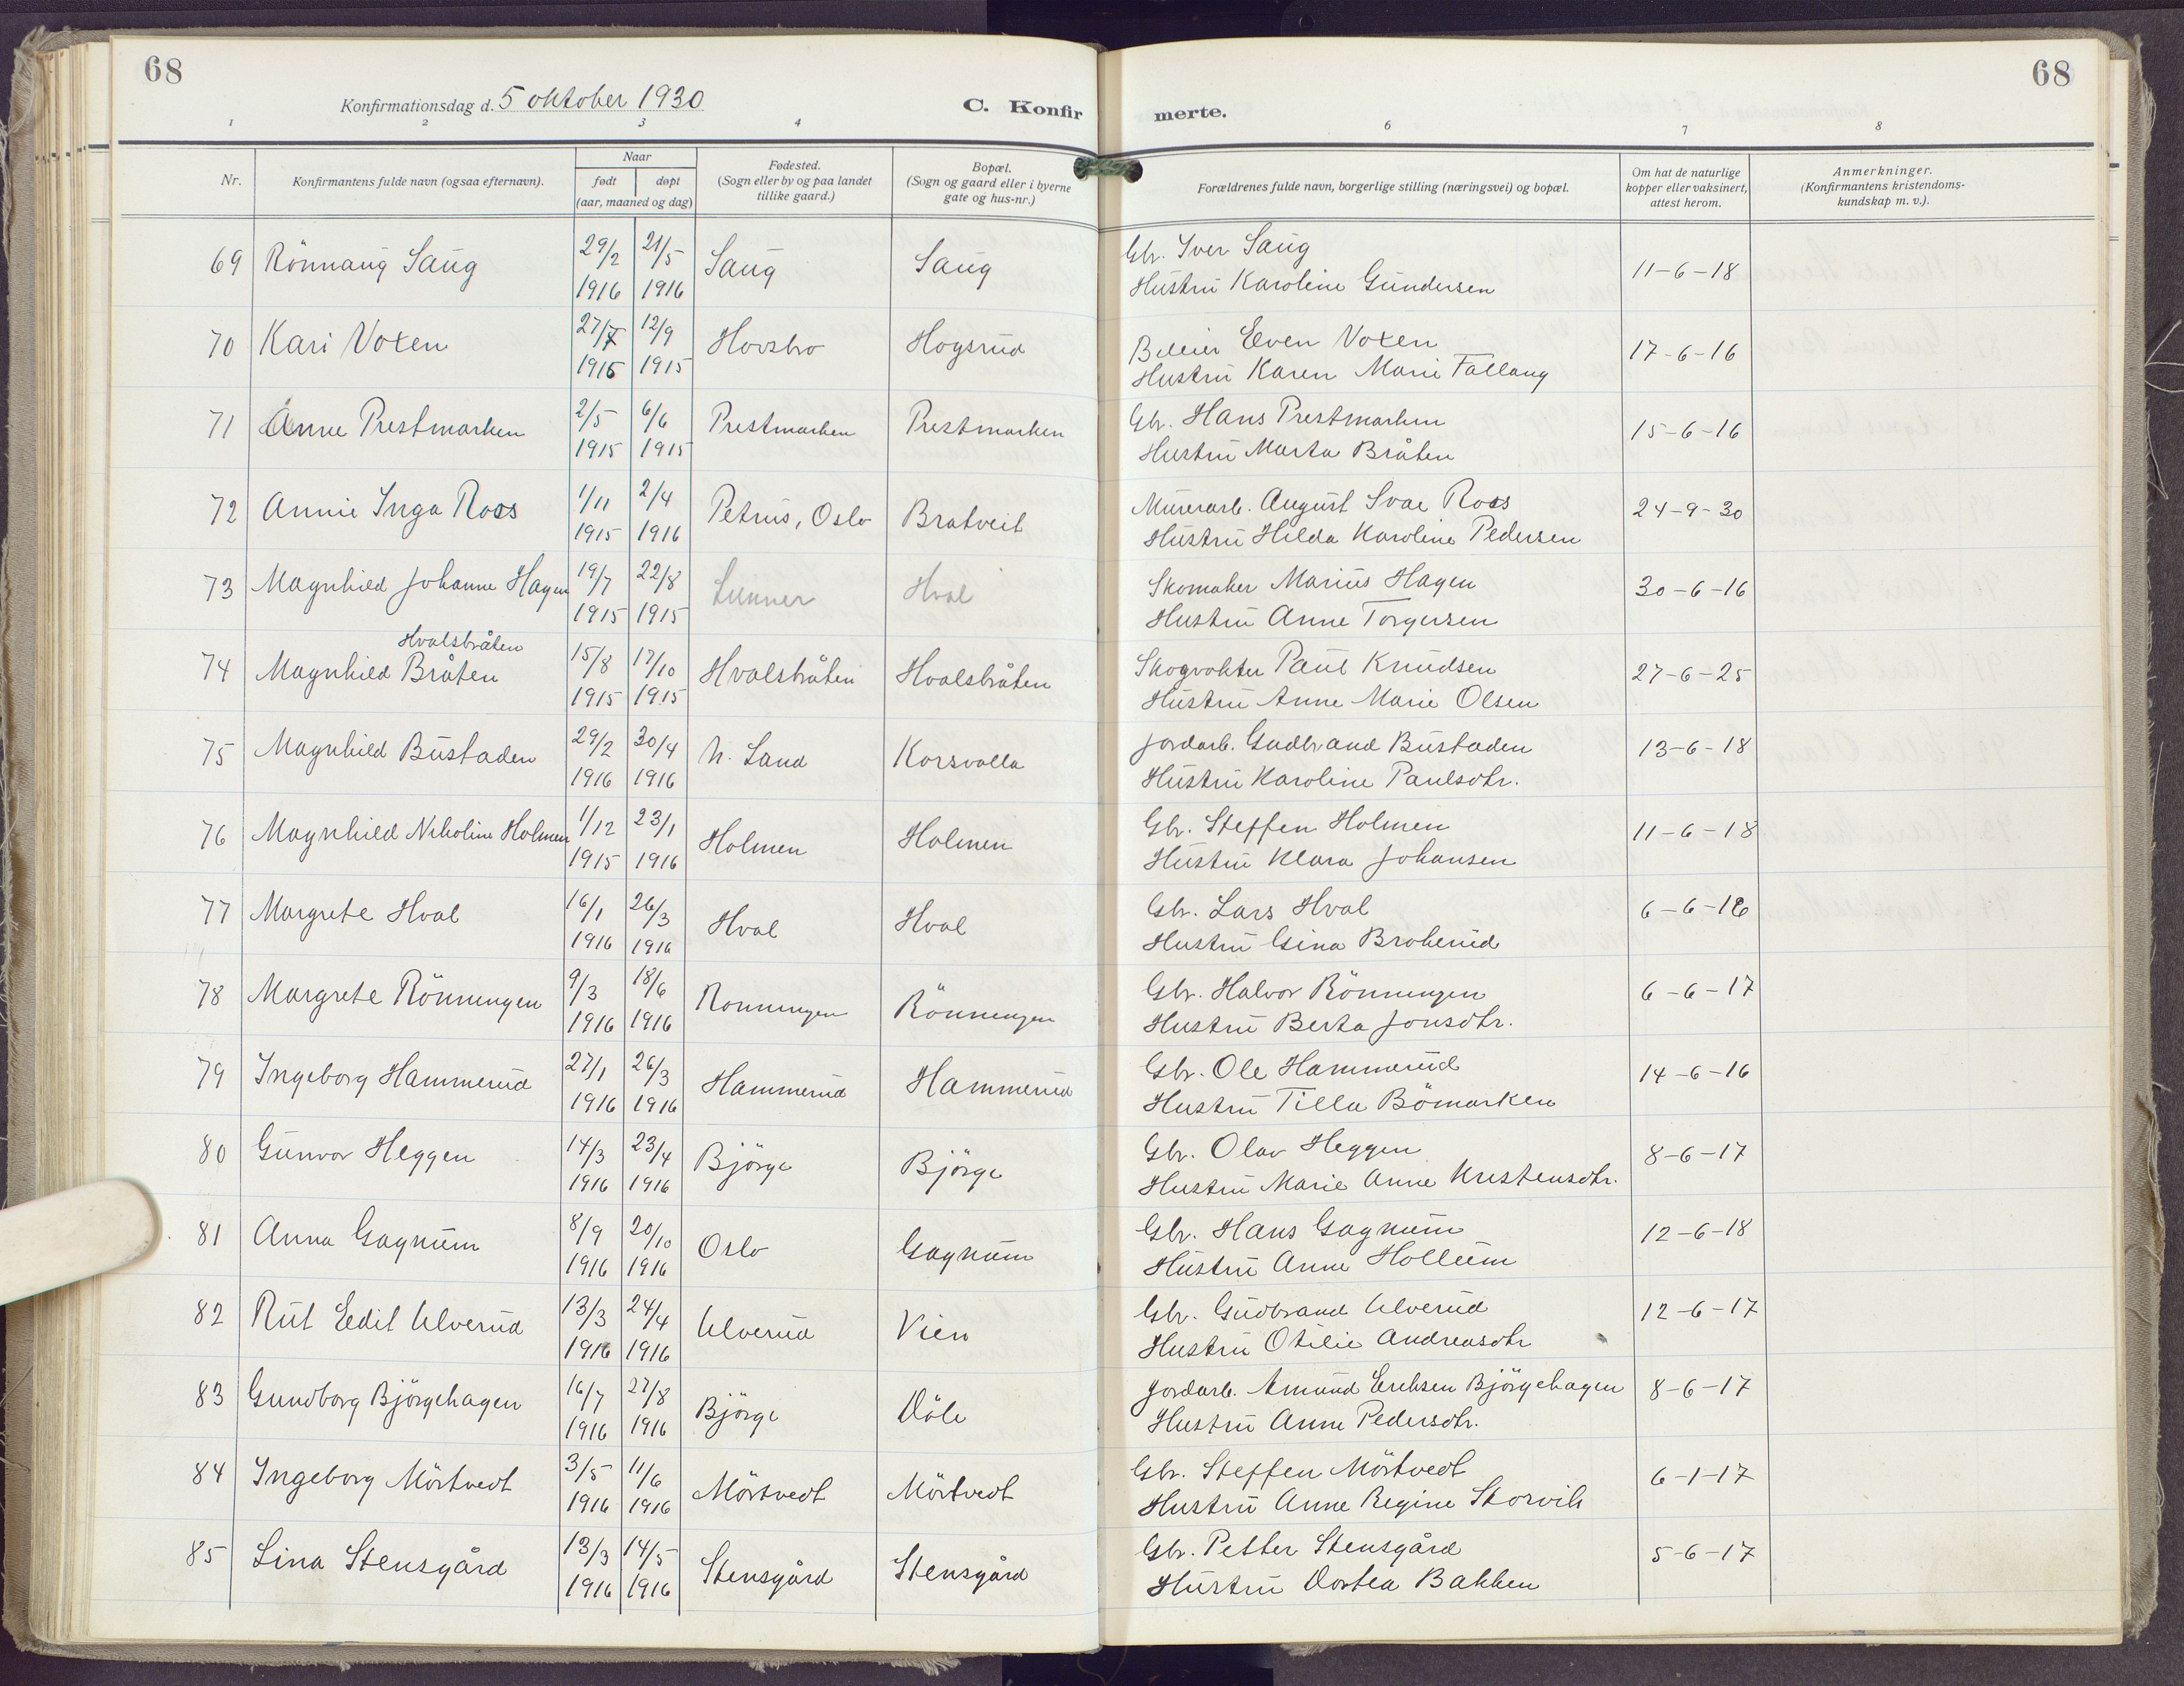 68
68
Konfirmationsdag d. 5 oktober 1930
C. Konfirmerte.
1 2 3 4 6 7 8
Nr.
Konfirmantens fulde navn (ogsaa efternavn).
Naar
født døpt
(aar, maaned og dag)
Fødested.
(Sogn eller by og paa landet
tillike gaard.)
Bopæl.
(Sogn og gaard eller i byerne
gate og hus-nr.)
Forældrenes fulde navn, borgerlige stilling (næringsvei) og bopæl.
Om hat de naturlige
kopper eller vaksinert,
attest herom.
Anmerkninger.
(Konfirmantens kristendoms-
kundskap m. v.).
69 Rönnaug Saug 29/2 1916 21/5 1916 Saug Saug Gbr. Iver Saug
Hustru Karoline Gundersen 11-6-18
70 Kari Voxen 27/7 1915 12/9 1915 Hovsbro Hogsrud Even Voxen
Hustru Karen Marie Fallang 17-6-16
71 Anne Prestmarken 2/5 1915 6/6 1915 Prestmarken Prestmarken Gbr. Hans Prestmarken
Hustru Marta Bråten 15-6-16
72 Annie Inga Roos 1/11 1915 2/4 1916 Petrus, Oslo Bratveit Murerarb. August Svae Roos
Hustru Hilda Karoline Pedersen 24-9-30
73 Magnhild Johanne Hagen 19/7 1915 22/8 1915 Lunner Hval Skomaker Marius Hagen
Hustru Anne Torgersen 30-6-16
Hvalsbråten
74 Magnhild Bråten 15/8 1915 17/10 1915 Hvalsbråten Hvalsbråten Skogvokter Paul Knudsen
Hustru Anne Marie Olsen 27-6-25
75 Magnhild Bustaden 29/2 1916 30/4 1916 N. Land Korsvolla Jordarb. Gudbrand Bustaden
Hustru Karoline Paulsdtr. 13-6-18
76 Magnhild Nikoline Holmen 1/12 1915 23/1 1916 Holmen Holmen Gbr. Steffen Holmen
Hustru Klara Johansen 11-6-18
77 Margrete Hval 16/1 1916 26/3 1916 Hval Hval Gbr. Lars Hval
Hustru Gina Brokerud 6-6-16
78 Margrete Rönningen 9/3 1916 18/6 1916 Rönningen Rönningen Gbr. Halvor Rönningen
Hustru Berta Jonsdtr. 6-6-17
79 Ingeborg Hammerud 27/1 1916 26/3 1916 Hammerud Hammerud Gbr. Ole Hammerud
Hustru Tilla Bömarken 14-6-16
80 Gunvor Heggen 14/3 1916 23/4 1916 Björge Björge Gbr. Olav Heggen
Hustru Marie Anne Kristensdtr. 8-6-17
81 Anna Gagnum 8/9 1916 20/10 1916 Oslo Gagnum Gbr. Hans Gagnum
Hustru Anne Hollum 12-6-18
82 Rut Edit Ulverud 13/3 1916 24/4 1916 Ulverud Vien Gbr. Gudbrand Ulverud
Hustru Otilie Andreasdtr 12-6-17
83 Gundborg Björgehagen 16/7 1916 27/8 1916 Björge Döle Jordarb. Amund Eriksen Björgehagen
Hustru Anne Pedersdtr. 8-6-17
84 Ingeborg Mörtvedt 3/5 1916 11/6 1916 Mörtvedt Mörtvedt Gbr. Steffen Mörtvedt
Hustru Anne Regine Storvik 6-1-17
85 Lina Stensgård 13/3 1916 14/5 1916 Stensgård Stensgård Gbr. Petter Stensgård
Hustru Dortea Bakken 5-6-17